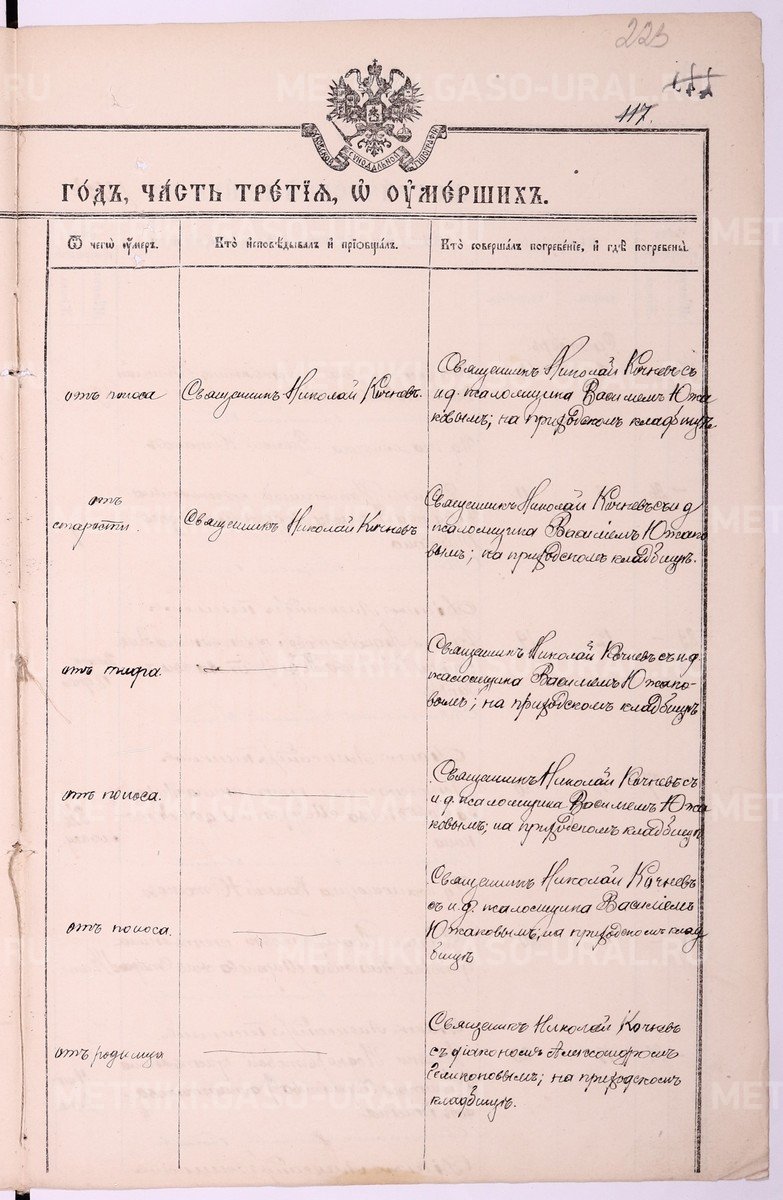 223
117.
МОСКОВСКОЙ СѴНОДАЛЬНОЙ ТИПОГРАФІИ
ГО́ДЪ, ЧА́СТЬ ТРЕ́ТІЯ, Ѽ ОУМЕ́РШИХЪ.
Ѿ чегѡ̀ ᲂу҆́меръ.
Кто̀ и҆сповѣ́дывалъ и҆ прїѡбща́лъ.
Кто̀ соверша́лъ погребе́нїе, и҆ гдѣ̀ погребены̀.
отъ поноса
Священникъ Николай Кочневъ.
Священникъ Николай Кочневъ съ
и. д. псаломщика Василіемъ Южа
ковымъ; на приходскомъ кладбищѣ.
отъ
старости.
Священникъ Николай Кочневъ
Священникъ Николай Кочневъ съ и д
псаломщика Василіемъ Южако
вымъ; на приходскомъ кладбищѣ.
отъ тифа.
Священникъ Николай Кочневъ съ и. д.
псаломщика Василіемъ Южако-
вымъ; на приходскомъ кладбищѣ
отъ поноса.
Священникъ Николай Кочневъ съ
и д. псаломщика Василіемъ Южа
ковымъ; на приходскомъ кладбищѣ
отъ поноса.
Священникъ Николай Кочневъ
съ и. д. псаломщика Василіемъ
Южаковымъ; на приходскомъ клад
бищѣ
отъ родимца
Священникъ Николай Кочневъ
съ діакономъ Александромъ
на приходскомъ
кладбищѣ.
METRIKI.GASO-URAL.RU